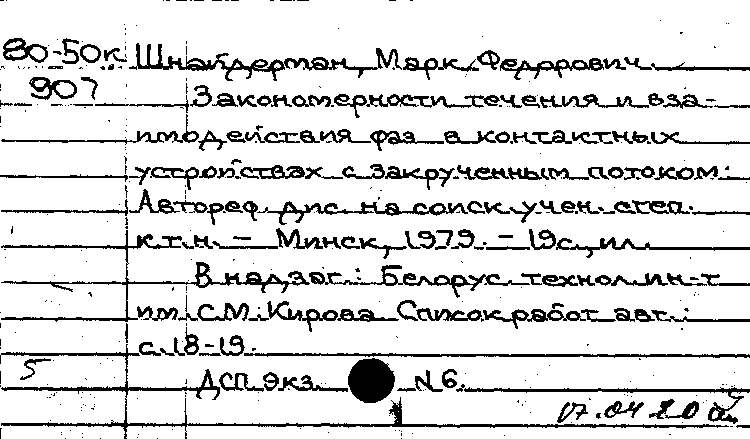 80-50к Шнайдерман, Марк Федорович.
907 Закономерности течения и вза-
имодействия фаз в контактных
устройствах с закрученным потоком:
Автореф. дис. на соиск. учен. степ.
к.т.н. – Минск, 1979. – 19 с., ил.
В надзаг.: Белорус. технол. ин-т
им. С.М. Кирова. Список работ авт.:
с. 18-19.
5 ДСП. Экз. N 6.
17.04.80